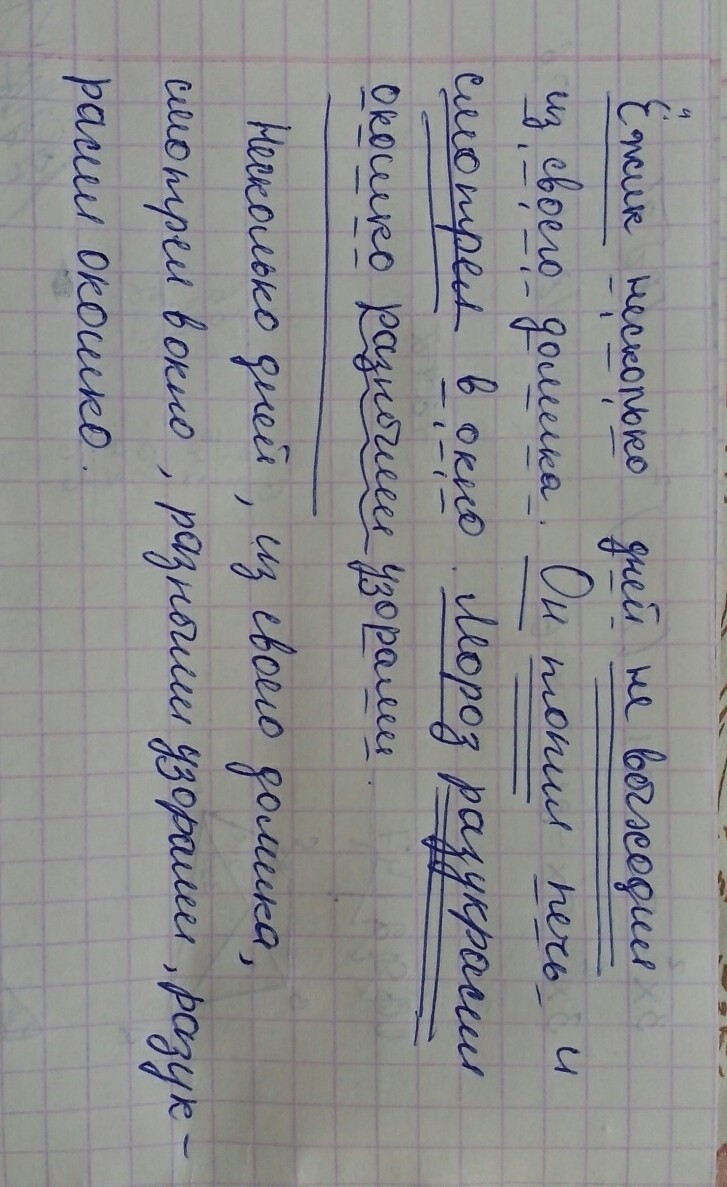 Ёжик нескорько дней не выходил
из своего домика. Он топил печь и
смотрел в окно. Мороз разукрасил
окошко разными узорами.
Несколько дней, из своего домика,
смотрел в окно, разными узорами, разук-
расил окошко.